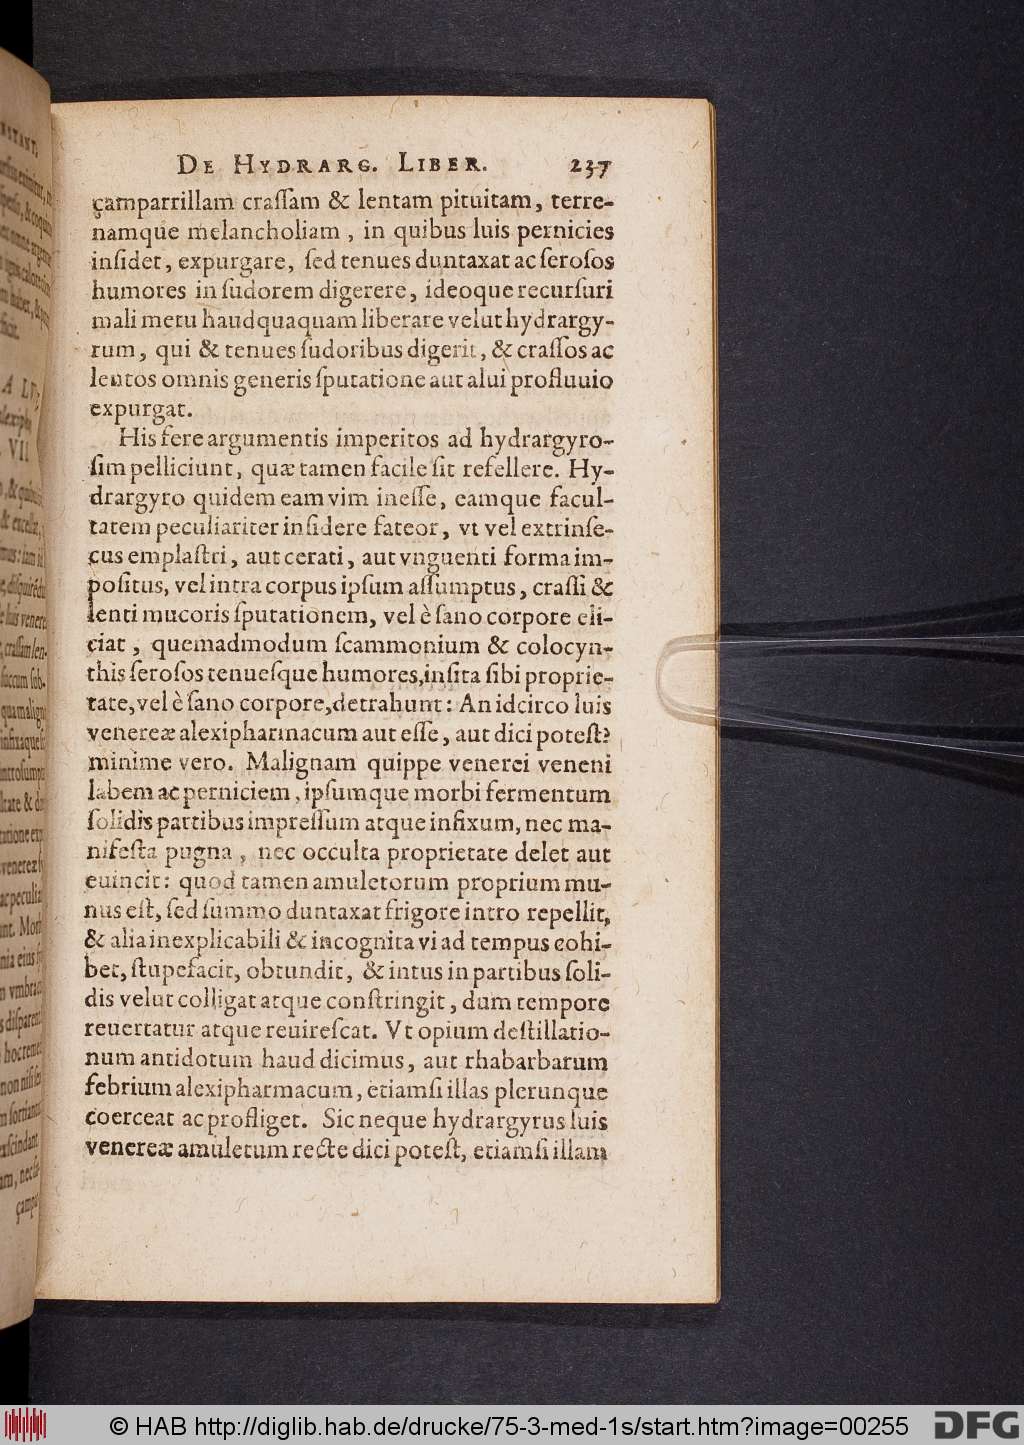 DE HYDRARG. LIBER. 237
çamparrillam craſſam & lentam pituitam, terre-
namque melancholiam, in quibus luis pernicies
inſidet, expurgare, ſed tenues duntaxat ac ſeroſos
humores in ſudorem digerere, ideoque recurſuri
mali metu haudquaquam liberare velut hydrargy-
rum, qui & tenues ſudoribus digerit, & craſſos ac
lentos omnis generis ſputatione aut alui profluuio
expurgat.
His fere argumentis imperitos ad hydrargyro-
ſim pelliciunt, quæ tamen facile ſit refellere. Hy-
drargyro quidem eam vim ineſſe, eamque facul-
tatem peculiariter inſidere fateor, vt vel extrinſe-
cus emplaſtri, aut cerati, aut vnguenti forma im-
poſitus, vel intra corpus ipſum aſſumptus, craſſi &
lenti mucoris ſputationem, vel è ſano corpore eli-
ciat, quemadmodum ſcammonium & colocyn-
this ſeroſos tenueſque humores, inſita ſibi proprie-
tate, vel è ſano corpore, detrahunt: An idcirco luis
venereæ alexipharmacum aut eſſe, aut dici poteſt?
minime vero. Malignam quippe venerei veneni
labem ac perniciem, ipſumque morbi fermentum
ſolidis partibus impreſſum atque infixum, nec ma-
nifeſta pugna, nec occulta proprietate delet aut
euincit: quod tamen amuletorum proprium mu-
nus eſt, ſed ſummo duntaxat frigore intro repellit,
& alia inexplicabili & incognita vi ad tempus cohi-
bet, ſtupefacit, obtundit, & intus in partibus ſoli-
dis velut colligat atque conſtringit, dum tempore
reuertatur atque reuireſcat. Vt opium deſtillatio-
num antidotum haud dicimus, aut rhabarbarum
febrium alexipharmacum, etiamſi illas plerunque
coerceat ac profliget. Sic neque hydrargyrus luis
venereæ amuletum recte dici poteſt, etiamſi illam
© HAB http://diglib.hab.de/drucke/75-3-med-1s/start.htm?image=00255
DFG